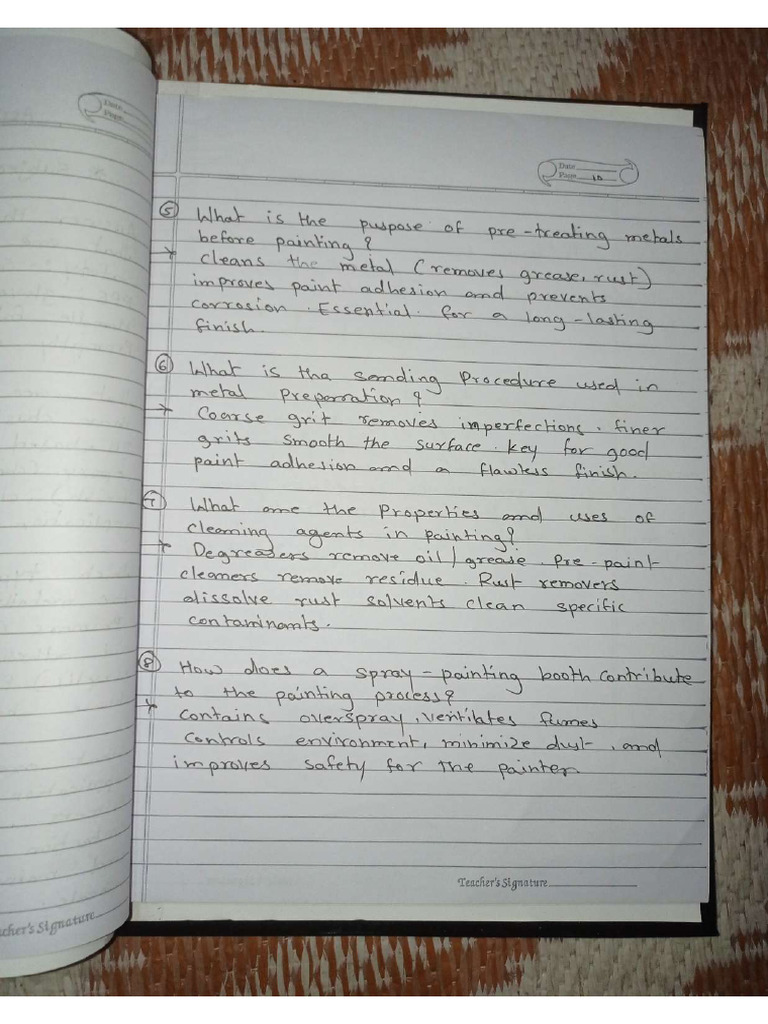 Date
Page
Date
Page 10
5 What is the puspose of pre-treating metals
before painting?
* cleans the metal (removes grease, rust)
improves paint adhesion and prevents
corrosion. Essential. for a long-lasting
finish.
6 What is tha sanding Procedure used in
metal Preparation?
* Coarse grit removes imperfections. finer
grits smooth the surface. key for good
paint adhesion and a flawless finish.
7 What are the Properties and uses of
cleaning agents in painting?
* Degreasers remove oil/grease. pre-paint
cleaners remove residue. Rust removers
dissolve rust solvents clean specific
contaminants.
8 How does a spray-painting booth contribute
to the painting process?
* contains overspray, ventilates fumes
controls environment, minimize dust, and
improves safety for the painter.
Teacher's Signature
cher's Signature